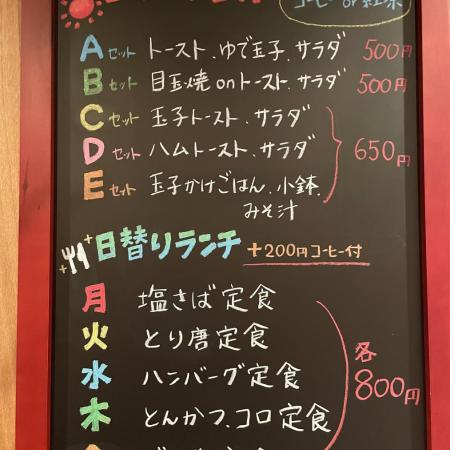 コーヒー or 紅茶
Aセット トースト、ゆで玉子、サラダ 500円
Bセット 目玉焼onトースト、サラダ 500円
Cセット 玉子トースト、サラダ
Dセット ハムトースト、サラダ 650円
Eセット 玉子かけごはん、小鉢、
みそ汁
日替りランチ +200円コーヒー付
月 塩さば定食
火 とり唐定食
水 ハンバーグ定食 各800円
木 とんかつ、コロ定食